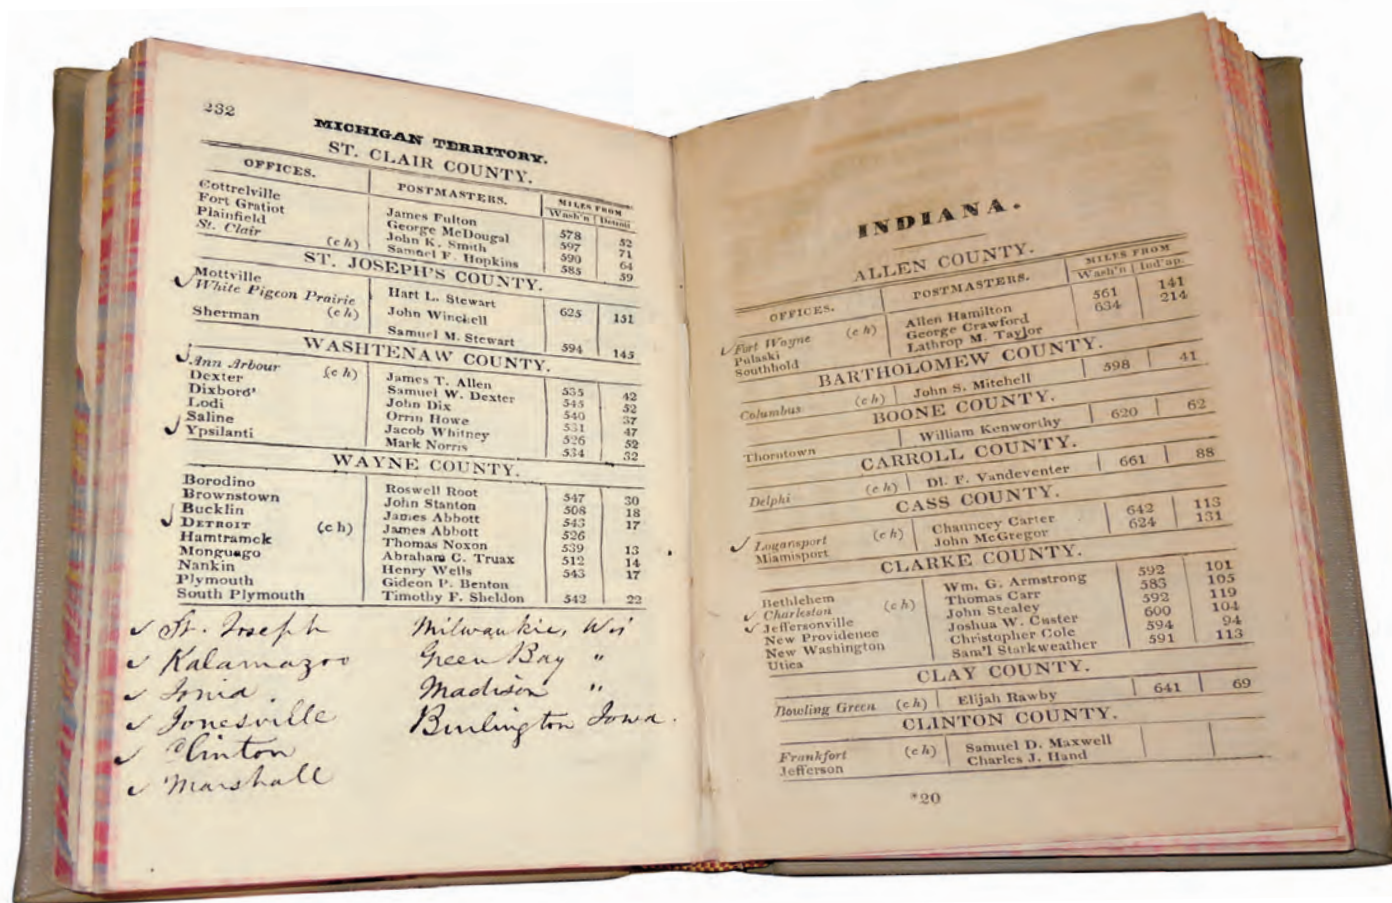 232
MICHIGAN TERRITORY.
ST. CLAIR COUNTY.
OFFICES. POSTMASTERS. MILES FROM
Wash'n Detroit
Cottrelville James Fulton 578 52
Fort Gratiot George McDougal 597 71
Plainfield John K. Smith 590 64
St. Clair (c h) Samuel F. Hopkins 585 59
ST. JOSEPH'S COUNTY.
Mottville Hart L. Stewart
✓ White Pigeon Prairie (c h) John Winchell 625 151
Sherman Samuel M. Stewart 594 145
WASHTENAW COUNTY.
✓ Ann Arbour (c h) James T. Allen 535 42
Dexter Samuel W. Dexter 545 52
Dixboro' John Dix 540 37
Lodi Orrin Howe 531 47
Saline Jacob Whitney 526 52
✓ Ypsilanti Mark Norris 534 32
WAYNE COUNTY.
Borodino Roswell Root 547 30
Brownstown John Stanton 508 18
Bucklin James Abbott 543 17
✓ DETROIT (c h) James Abbott 526
Hamtramck Thomas Noxon 539 13
Monguago Abraham C. Truax 512 14
Nankin Henry Wells 543 17
Plymouth Gideon P. Benton
South Plymouth Timothy F. Sheldon 542 22
✓ St. Joseph Milwaukie, Wis
✓ Kalamazoo Green Bay "
✓ Ionia. Madison "
✓ Jonesville Burlington Iowa.
✓ Clinton
✓ Marshall
INDIANA.
ALLEN COUNTY.
OFFICES. POSTMASTERS. MILES FROM
Wash'n Ind'ap.
✓ Fort Wayne (c h) Allen Hamilton 561 141
Pulaski George Crawford 634 214
Southhold Lathrop M. Taylor
BARTHOLOMEW COUNTY.
Columbus (c h) John S. Mitchell 598 41
BOONE COUNTY.
Thorntown William Kenworthy 620 62
CARROLL COUNTY.
Delphi (c h) Dl. F. Vandeventer 661 88
CASS COUNTY.
✓ Logansport (c h) Chauncey Carter 642 113
Miamisport John McGregor 624 131
CLARKE COUNTY.
Bethlehem Wm. G. Armstrong 592 101
✓ Charleston (c h) Thomas Carr 583 105
✓ Jeffersonville John Stealey 592 119
New Providence Joshua W. Custer 600 104
New Washington Christopher Cole 594 94
Utica Sam'l Starkweather 591 113
CLAY COUNTY.
Bowling Green (c h) Elijah Rawby 641 69
CLINTON COUNTY.
Frankfort (c h) Samuel D. Maxwell
Jefferson Charles J. Hand
*20